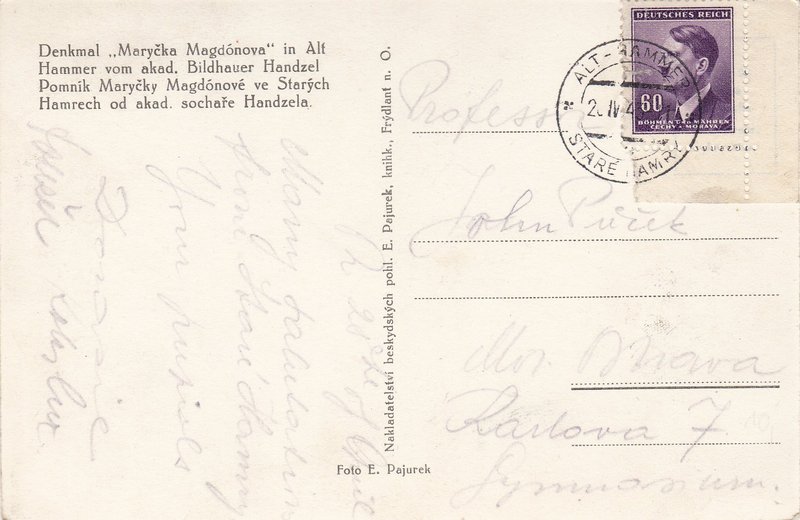 Denkmal „Maryčka Magdónova" in Alt
Hammer vom akad. Bildhauer Handzel
Pomník Maryčky Magdónové ve Starých
Hamrech od akad. sochaře Handzela.
Many salutations
from Staré Hamry
Your pupils
Nakladatelství beskydských pohl. E. Pajurek, knihk., Frýdlant n. O.
Foto E. Pajurek
DEUTSCHES REICH
60
BÖHMEN u. MÄHREN
ČECHY a MORAVA
ALT-HAMMER
IV
STARÉ HAMRY
Professor
John
Mor. Ostrava
Karlova 7
Gymnasium.